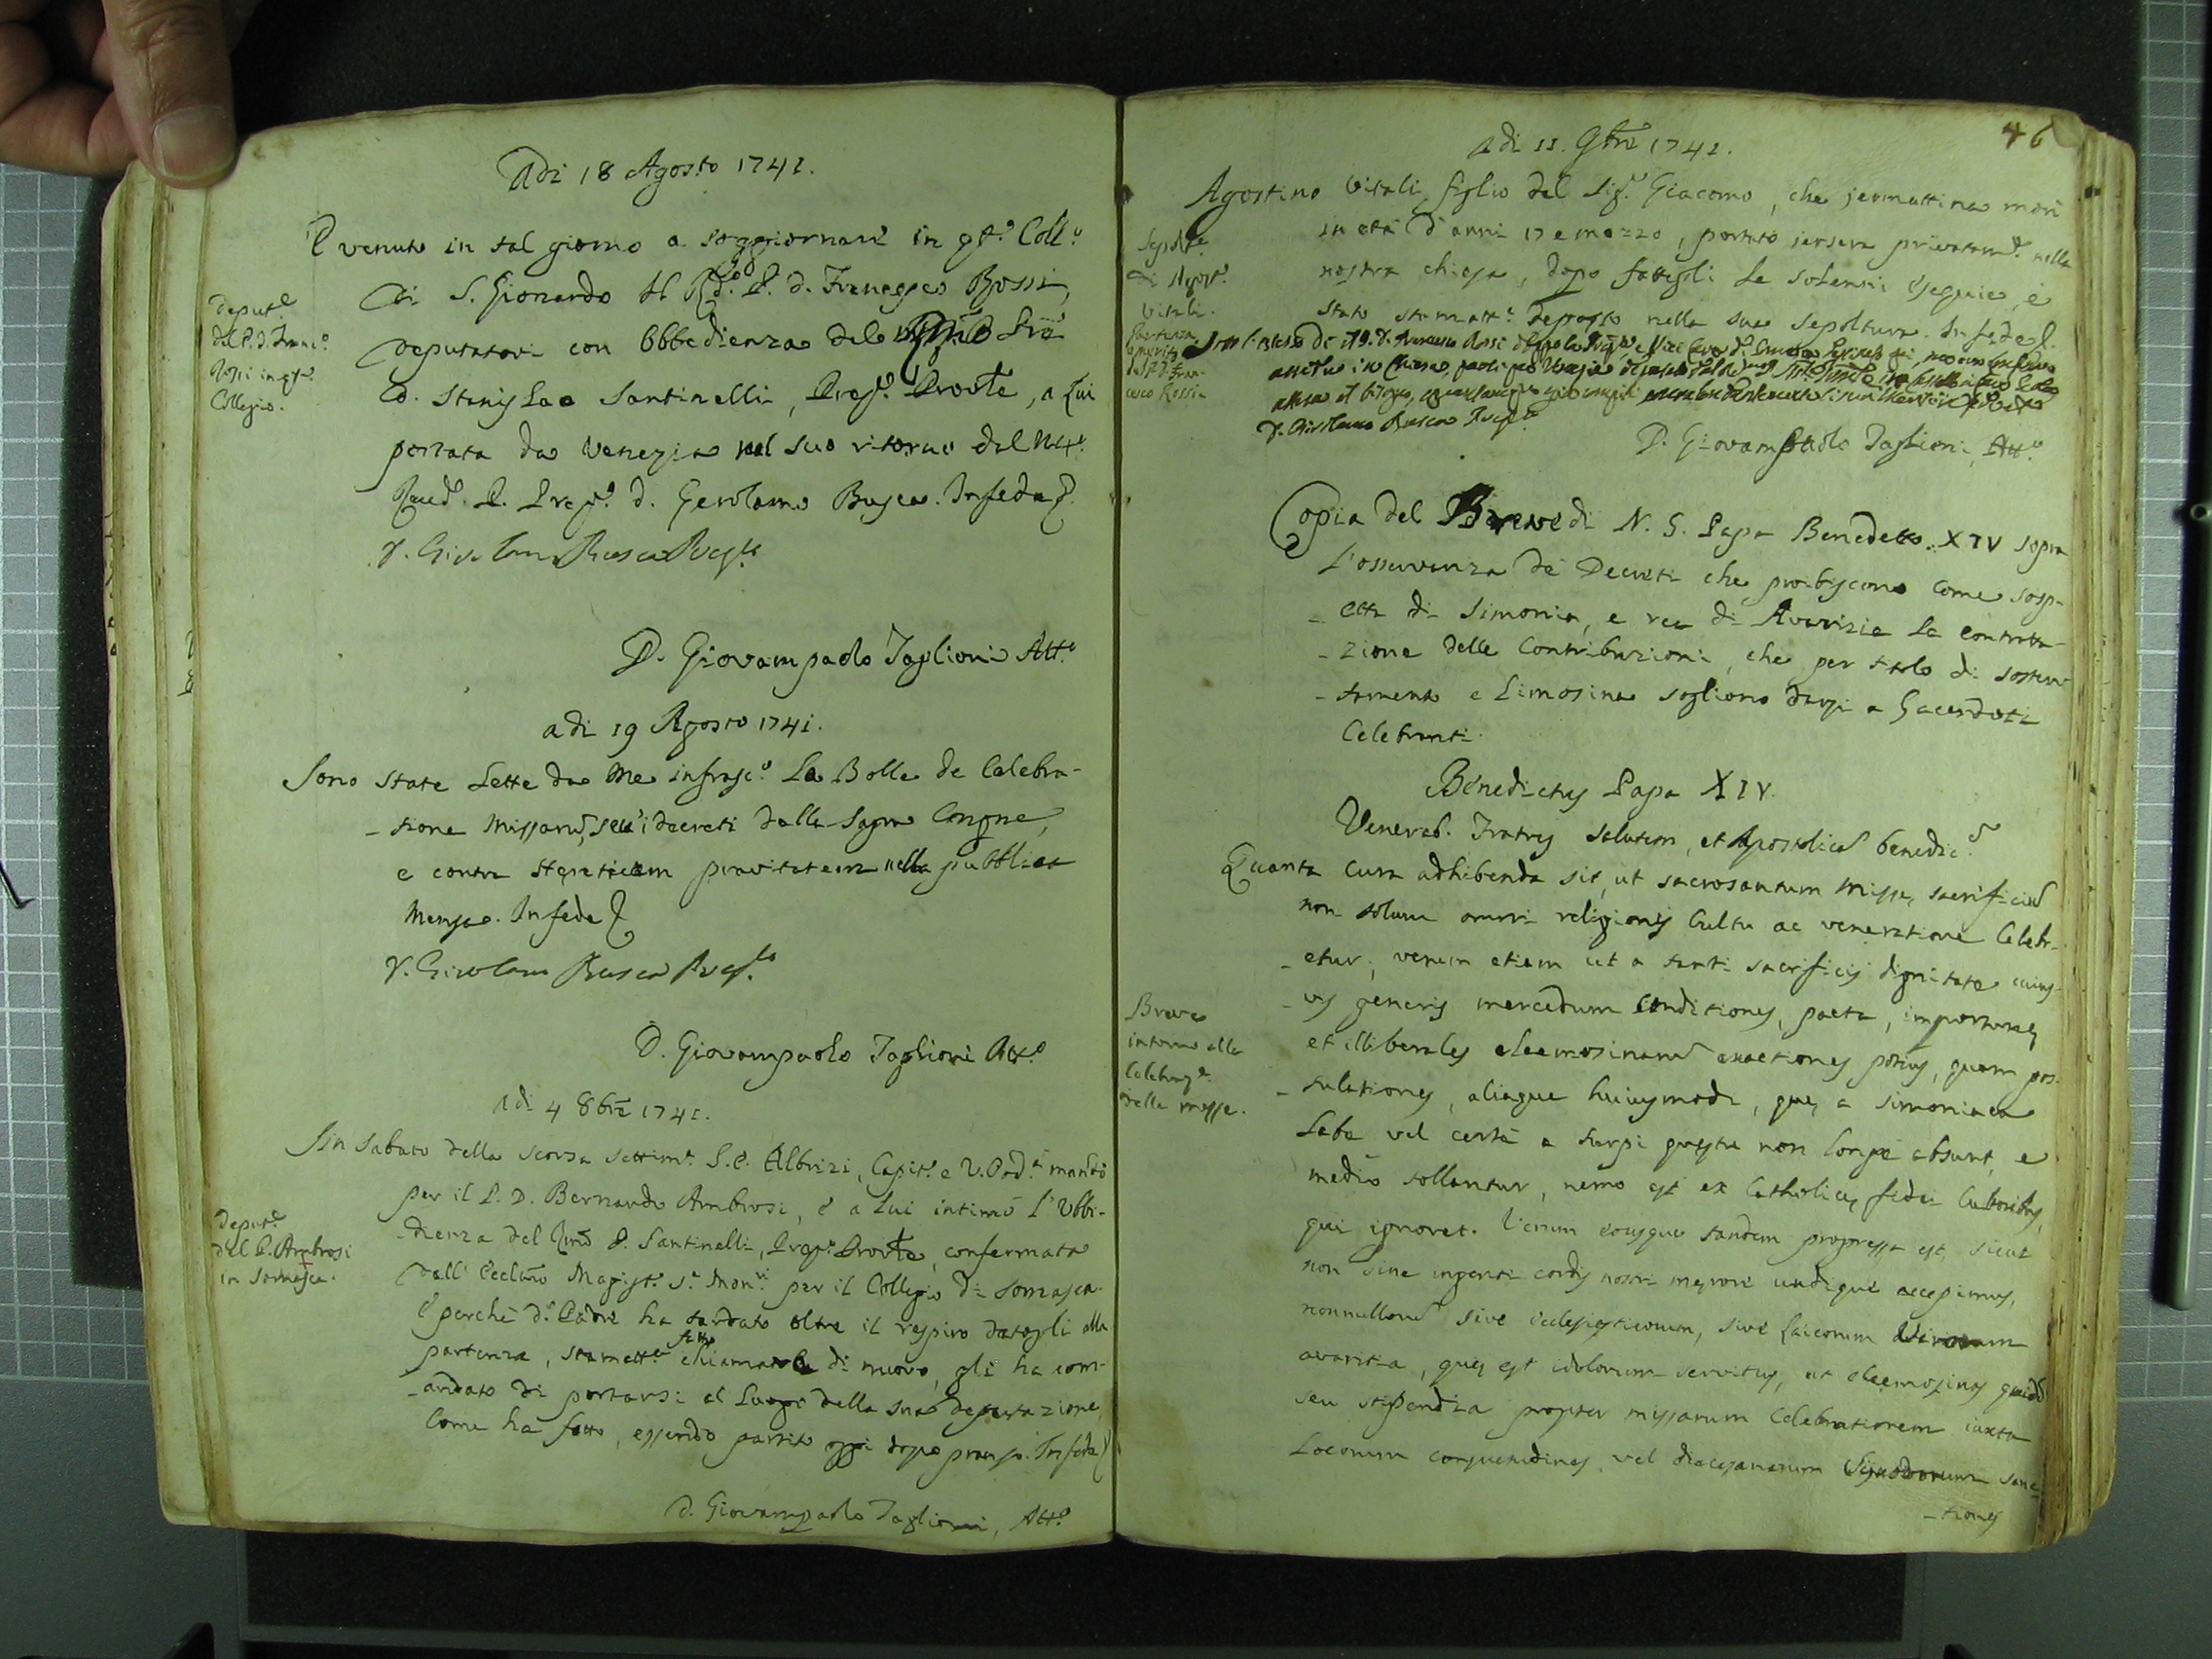 Adi 18 Agosto 1741.
E venuto in tal giorno a soggiornare in qto. Collo.
di S. Gionardo il Rdo. P. d. Francesco Rossi,
deputatovi con Obbedienza del
D. Stanislao Santinelli, Prepo. Provle, a lui
portata da Venezia nel suo ritorno dal Mto.
Revdo. P. Prepo. d. Gerolamo Rusca. In fede
D. Girolamo Rusca Prepto
Deputne
del P. D. Franco.
Rossi in qto.
Collegio.
D. Giovampaolo Taglioni Atto.
adi 19 Agosto 1741.
Sono state Lette da me infrascto. La Bolla de Celebra-
-tione Missarum, i decreti della Sagra Congne,
e contra Hereticam pravitatem nella pubblica
Mensa. In fede
D. Girolamo Rusca Prepto
D. Giovampaolo Taglioni Atto.
adi 4 8bre 1741.
Sin sabato della scorsa settima. S. E. Albrizi, Capito. e V. Podà mandò
per il P. D. Bernardo Ambrosi, e a lui intimò l'Ubbi-
-dienza del Rmo P. Santinelli, Prepo. Provle, confermata
dall' Ecclmo Magisto. Sr. Monri. per il Collegio di Somasca.
E perchè do. Padre ha tardato oltre il respiro datogli alla
partenza, stamatta. fatto chiamare di nuovo, gli ha com-
-andato di portarsi al Luogo della sua deputazione,
Come ha fatto, essendo partito oggi dopo pranzo. In fede
Deputne
del P. Ambrosi
in Somasca.
D. Giovampaolo Taglioni, Atto.
46
adi 11. 9bre 1741.
Agostino Vitali figlio del Sigr. Giacomo, che jermattina morì
in età d'anni 17 e mezzo, portato jersera privatame. nella
nostra chiesa, dopo fattegli le solenni esequie, è
stato stamatta. deposto nella sua sepoltura. In fede
Sepolte.
di Agosto.
Vitali.
Partenza
del P. D. Fran-
cesco Rossi
D. Girolamo Rusca Prepto
D. Giovampaolo Taglioni, Atto.
Copia del Breve di N. S. Papa Benedetto XIV sopra
l'osservanza de' Decreti che proibiscono come sosp-
-etta di Simonia, e rea di Avarizia la contratta-
-zione delle Contribuzioni, che per titolo di sosten-
-tamento e Limosina sogliono darsi a Sacerdoti
Celebranti.
Benedictus Papa XIV.
Venerab. Fratres salutem, et Apostolicam benedicm.
Quanta cura adhibenda sit, ut sacrosantum Missæ sacrificium
non solum omni religionis Cultu ac veneratione Celebr-
-etur; verum etiam ut a tanti sacrificij dignitate cuius-
-vis generis mercedum conditiones, pacta, importunæ
et illiberales eleemosinarum exactiones potius, quam pos-
-tulationes, aliaque huiusmodi, quæ a simoniaca
labe vel certè a turpi questu non longè absunt, e
medio tollantur, nemo est ex Catholicæ fidei Cultoribus,
qui ignoret. Verum eousque tandem progressa est, sicut
non sine ingenti cordis nostri merore undique accepimus,
nonnullorum sive Ecclesiasticorum, sive Laicorum Virorum
avaritia, quæ est idolorum servitus, ut eleemosinas quidem
seu stipendia propter missarum Celebrationem iuxta
Locorum consuetudines, vel diœcesanarum Synodorum sanc-
-tiones
Breve
intorno alla
Celebrazne.
delle messe.